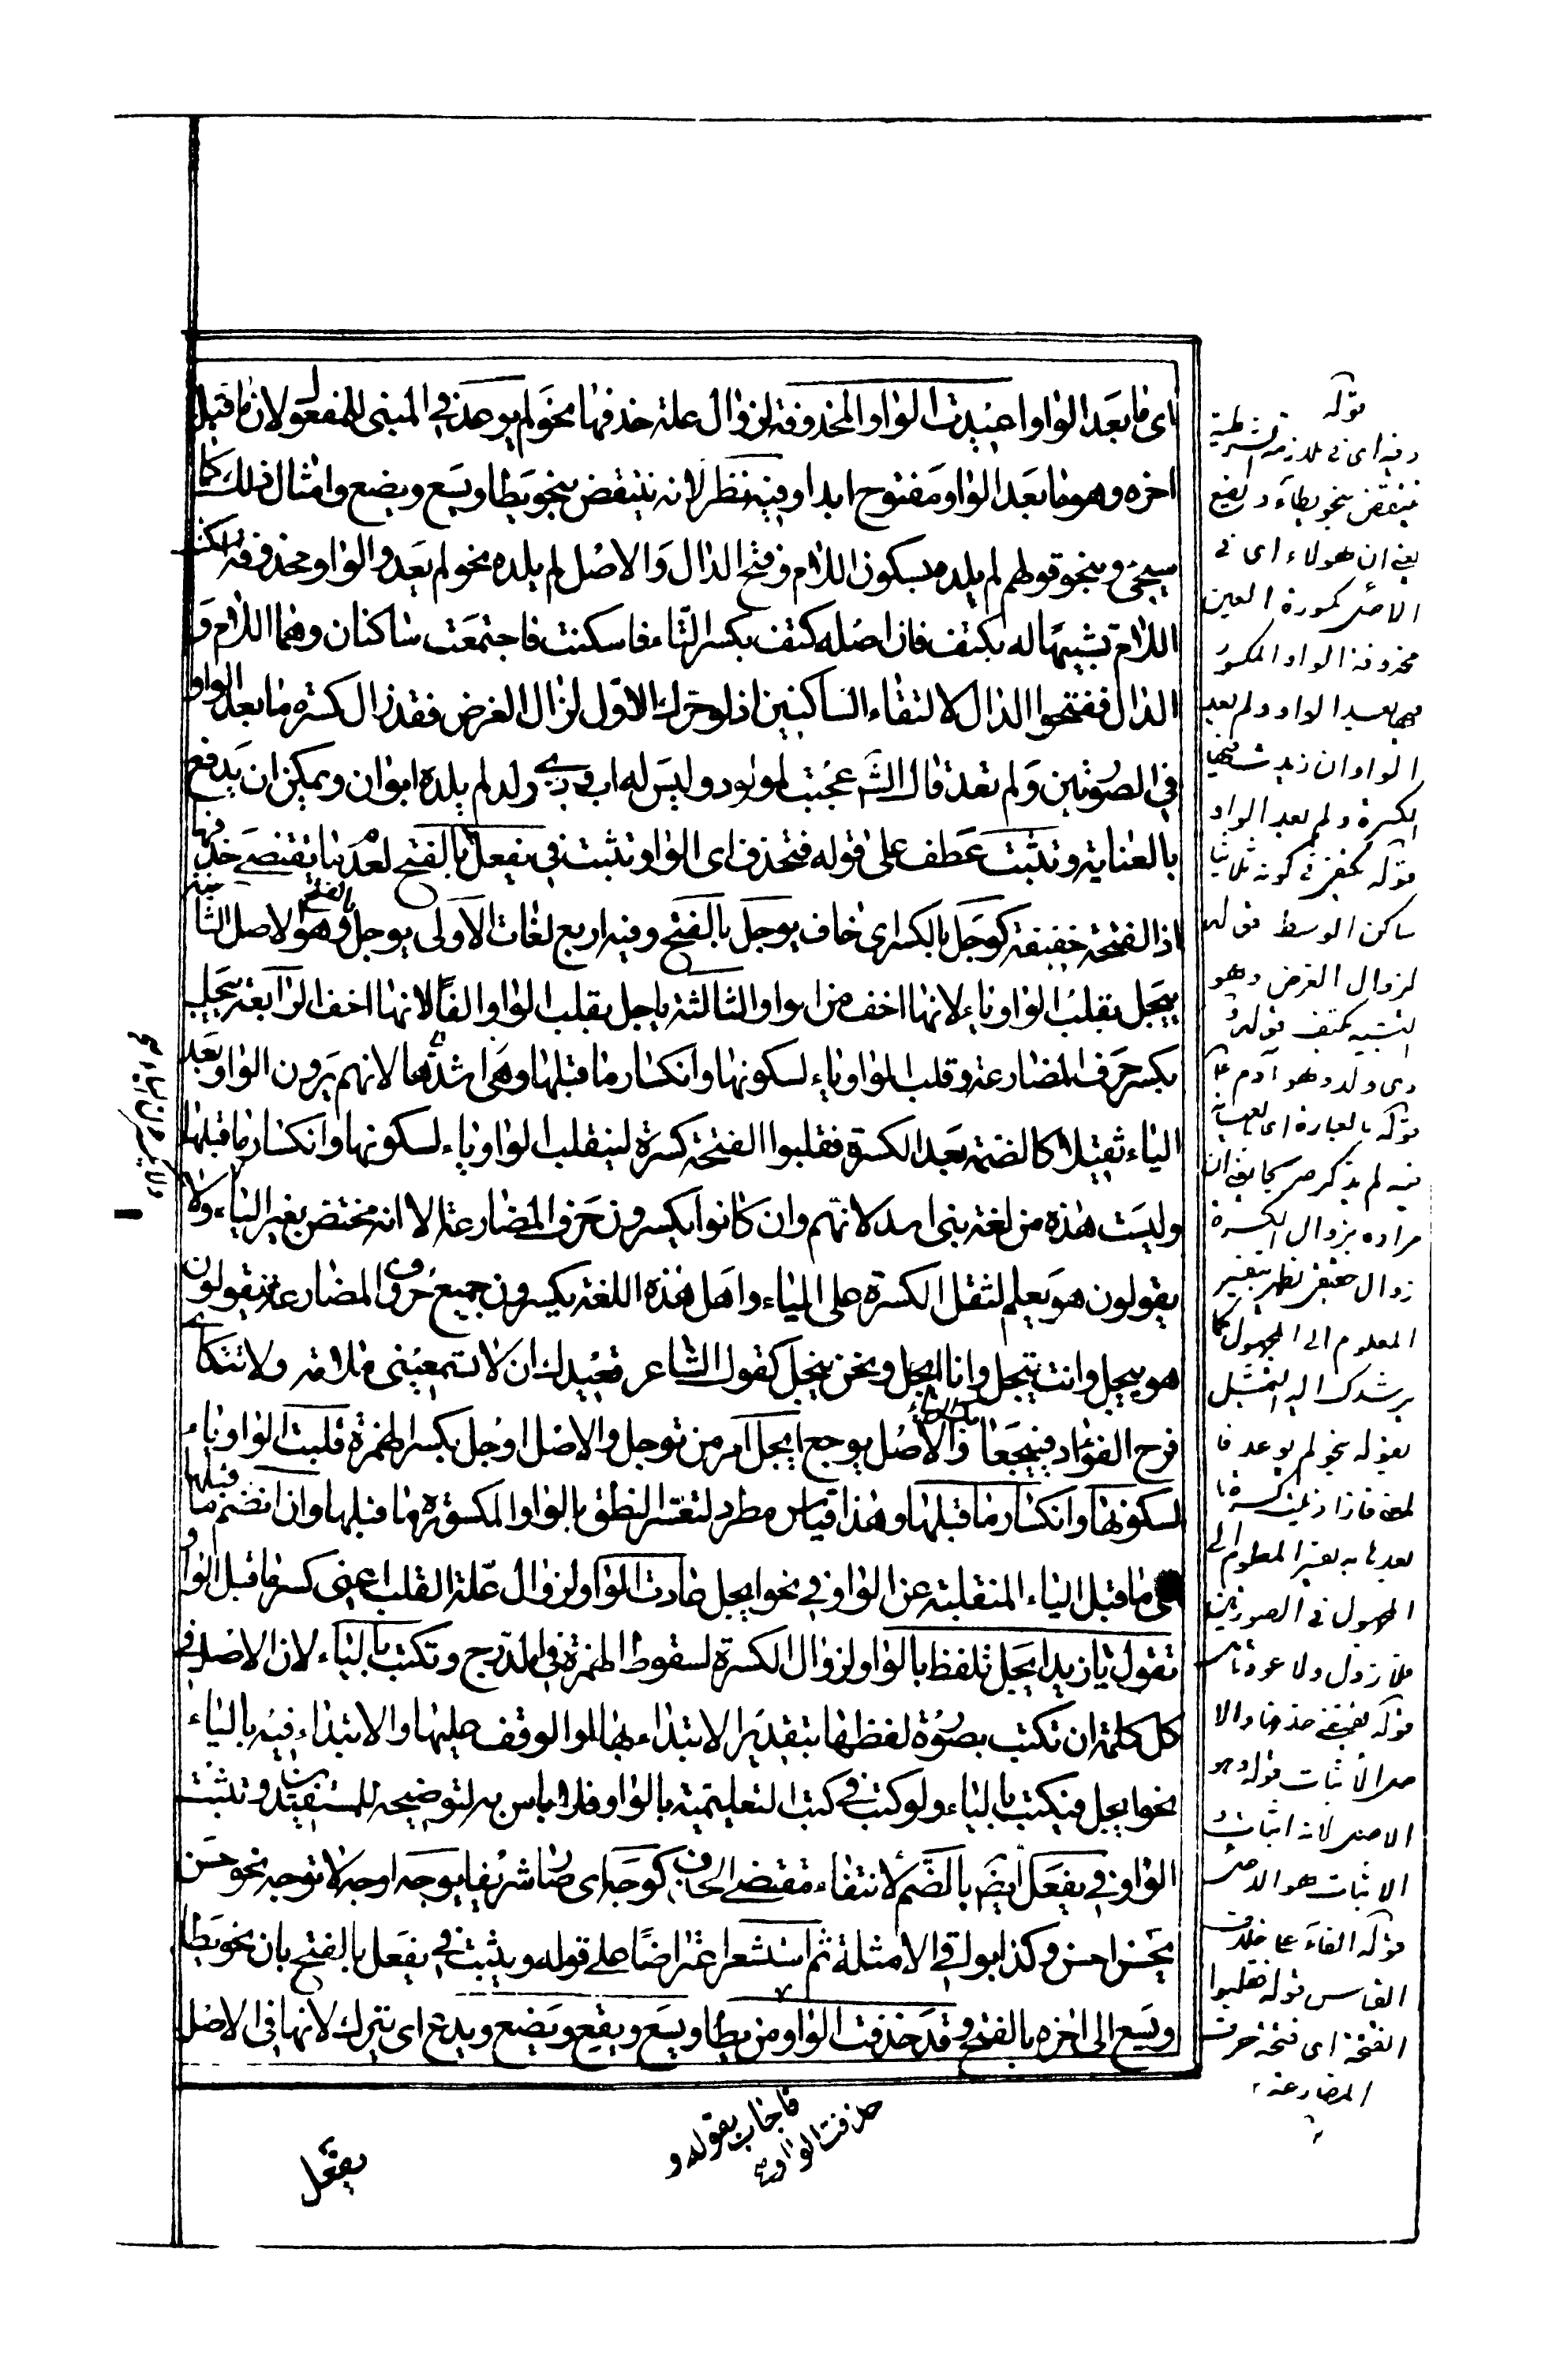 اى ما بعد الواو اعيدت الواو المحذوفة لزوال علة حذفها نحو لم يوعد فى المبنى للمفعول لان ما قبل
اخره وهو ما بعد الواو مفتوح ابدا وفيه نظر لانه ينتقض بنحو يطا ويسع ويضع وامثال ذلك كما
سيجئ وبنحو قولهم لم يلده بسكون اللام وفتح الدال والاصل لم يلده نحو لم يعد والواو محذوفة اسكنت
اللام تشبيها له بكتف فان اصله كتف بكسر التاء فاسكنت فاجتمعت ساكنان وهما اللام و
الدال ففتحوا الدال لالتقاء الساكنين اذ لو حرك الاول لزال الغرض فقد زال كسرة ما بعد الواو
فى الصورتين ولم تعد قال الشـ عجبت لمولود وليس له اب وذى ولد لم يلده ابوان ويمكن ان يدفع
بالعناية وتثبت عطف على قوله فتحذف اى الواو تثبت فى يفعل بالفتح لعدم ما يقتضى حذفها
اذ الفتحة خفيفة كوجل بالكسر اى خاف يوجل بالفتح وفيه اربع لغات الاولى يوجل وهو الاصل الثا نية
ييجل بقلب الواو ياء لانها اخف من الواو الثالثة ياجل بقلب الواو الفا لانها اخف الرابعة ييجل
بكسر حرف المضارعة وقلب الواو ياء لسكونها وانكسار ما قبلها وهى اشدها لانهم يرون الواو بعد
الياء ثقيلا كالضمة بعد الكسرة فقلبوا الفتحة كسرة لينقلب الواو ياء لسكونها وانكسار ما قبلها
وليست هذه من لغة بنى اسد لانهم وان كانوا يكسرون حرف المضارعة الا انه مختص بغير الياء ولا
يقولون هو يعلم لثقل الكسرة على الياء واهل هذه اللغة يكسرون جميع حروف المضارعة يقولون
هو ييجل وانت تيجل وانا ايجل ونحن نيجل كقول الشاعر قعيدك ان لا تسمعينى ملامة ولا تنكأى
قرح الفؤاد فييجعا والاصل يوجع ايجل امر من توجل والاصل اوجل بكسر الهمزة قلبت الواو ياء
لسكونها وانكسار ما قبلها وهذا قياس مطرد لتعسر النطق بالواو المكسورة ما قبلها وان انضم ما قبلها
اى ما قبل الياء المنقلبة عن الواو فى نحو ايجل عادت الواو لزوال علة القلب اعنى كسر ما قبل الواو
تقول يا زيد ايجل تلفظ بالواو لزوال الكسرة لسقوط الهمزة فى الدرج وتكتب بالياء لان الاصل فى
كل كلمة ان تكتب بصورة لفظها بتقدير الابتداء بها والوقف عليها والابتداء فيه بالياء
نحو ايجل فيكتب بالياء ولو كتب فى كتب التعليمية بالواو فلا باس به لتوضيحه للمستفيدين وتثبت
الواو فى يفعل ايضا بالضم لانتفاء مقتضى الحذف كوجه اى صار شريفا يوجه اوجه لا توجه نحو حسن
يحسن احسن وكذا بواقى الامثلة ثم استشعر اعتراضا على قوله ويثبت فى يفعل بالفتح بان نحو يطا
ويسع الى اخره بالفتح وقد حذفت الواو من يطا ويسع ويقع ويضع ويدع اى يترك لانها فى الاصل
حذفت الواو منه
فاجاب بقوله و
يفعل
قوله
وفيه اى فى ملازمة الشرطية
ينتقض بنحو يطاء ويضع
يعنى ان هولاء اى فى
الاصل مكسورة العين
محذوفة الواو المكسور
ما بعد الواو ولم يعد
الواو ان زيد
الكسرة ولم يعد الواو
ساكن الوسط قوله
لزوال الغرض وهو
التشبيه بكتف قوله
ذى ولد وهو آدم ع
مراده بزوال الكسرة
المعلوم الى المجهول كما
يرشدك اليه التمثيل
بقوله نحو لم يوعد
المجهول فى الصورتين
قوله يقتضى حذفها والا
الاصل لانه اثبات
الاثبات هو الاصل
القياس قوله فقلبوا
الفتحة اى فتحة حرف
المضارعة